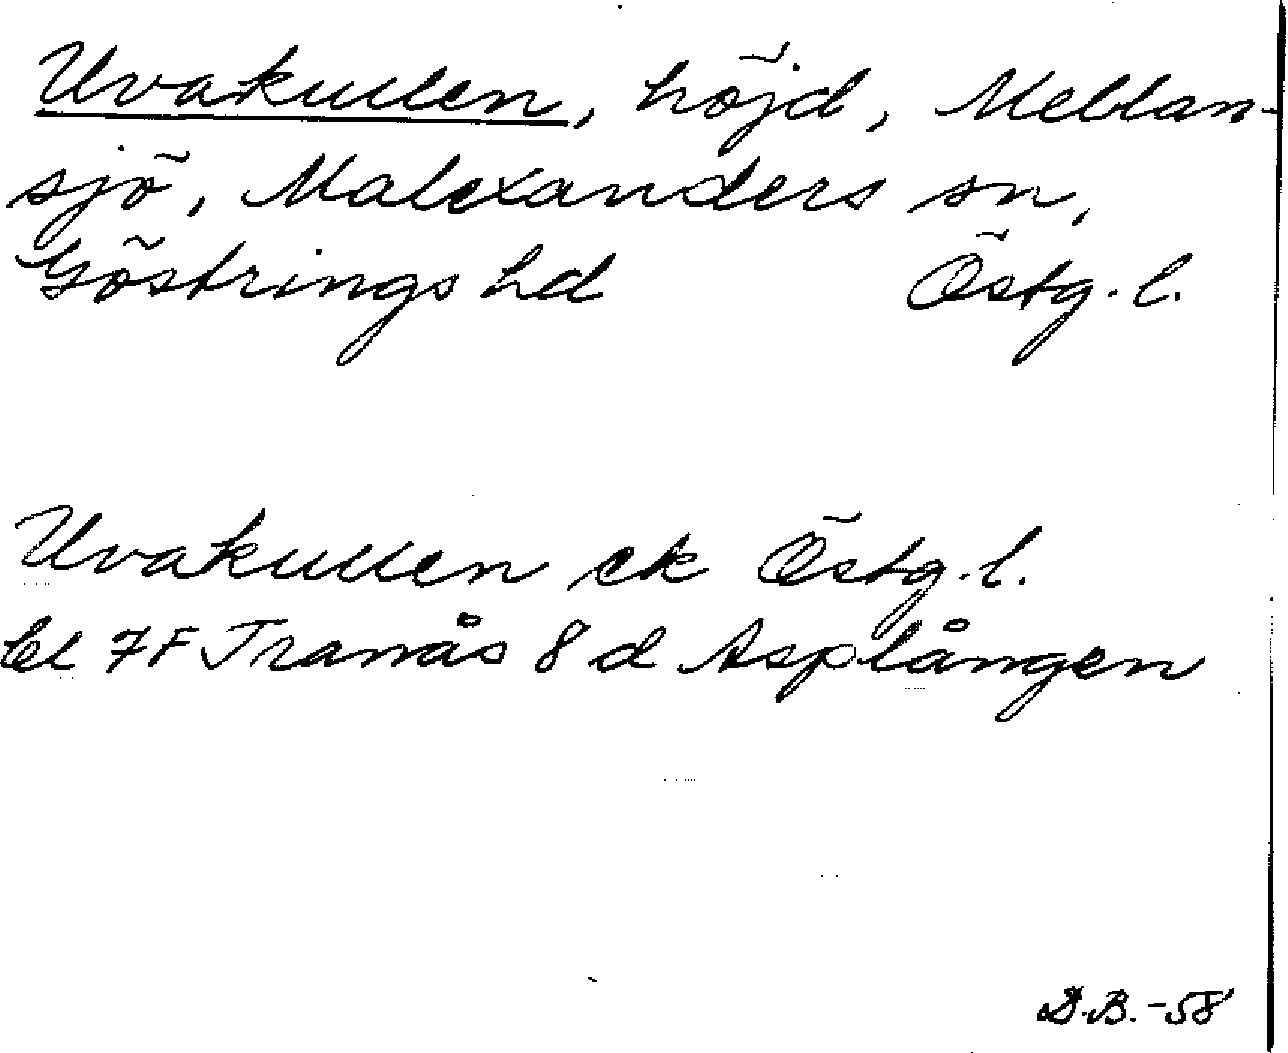 Uvakullen, höjd, Mellan-
sjö, Malexanders sn,
Göstrings hd Östg. l.
Uvakullen ek Östg. l.
bl 7F Tranås 8 d Asplången
D.B. -58